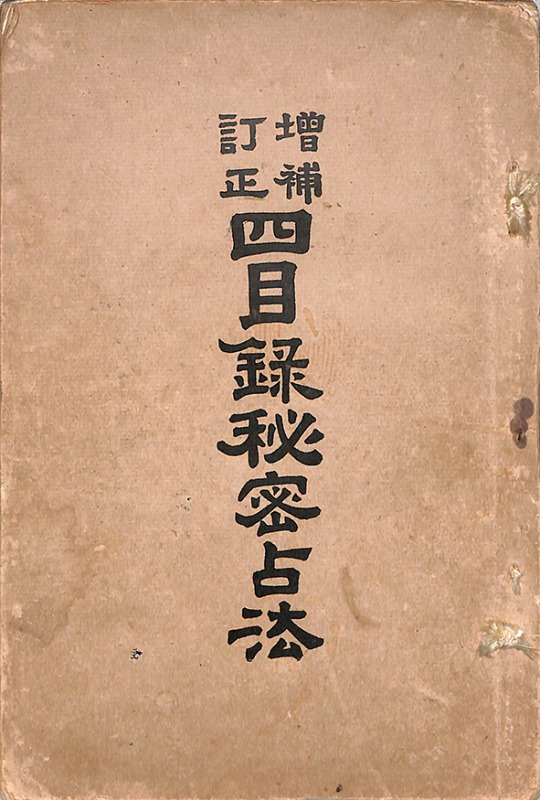 増補
訂正
四目録秘密占法